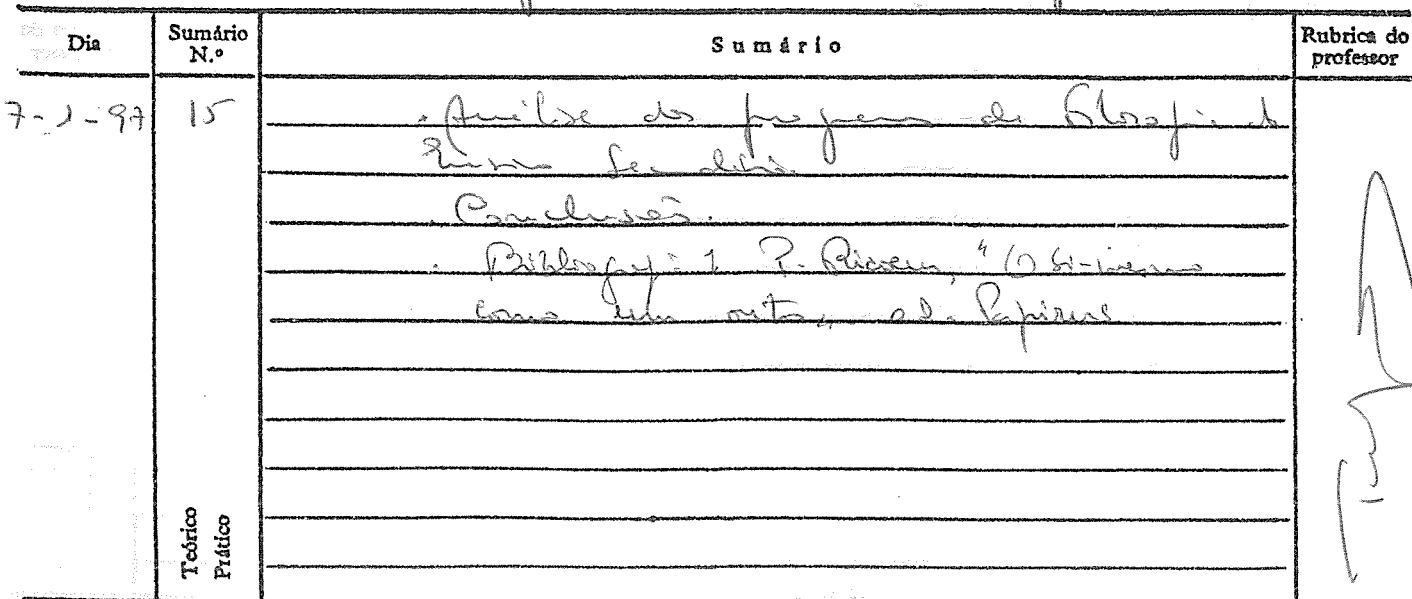 Dia Sumário N.º Sumário Rubrica do professor
7-1-97 15 . Análise dos programas de Filosofia do
Ensino Secundário.
. Conclusões.
. Bibliografia: P. Ricoeur, "O Si-mesmo
como um outro", ed. Papirus
Teórico
Prático